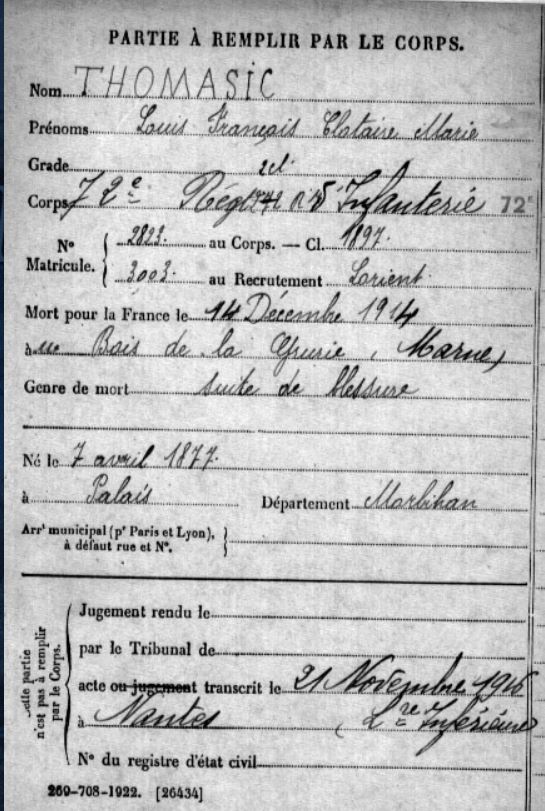 PARTIE À REMPLIR PAR LE CORPS.
Nom THOMASIC
Prénoms Louis François Clotaire Marie
Grade 2 cl
Corps 72e Régt d' Infanterie 72e
N° Matricule. 2823. au Corps. — Cl. 1897.
3003. au Recrutement Lorient
Mort pour la France le 14 Décembre 1914
à au Bois de la Grurie, (Marne)
Genre de mort suite de blessure
Né le 7 avril 1877.
à Palais Département Morbihan
Arrt municipal (pr Paris et Lyon),
à défaut rue et N°.
cette partie n'est pas à remplir par le Corps.
Jugement rendu le
par le Tribunal de
acte ou jugement transcrit le 21 Novembre 1916
à Nantes (Lre Inférieure
N° du registre d'état civil
269-708-1922. [26434]